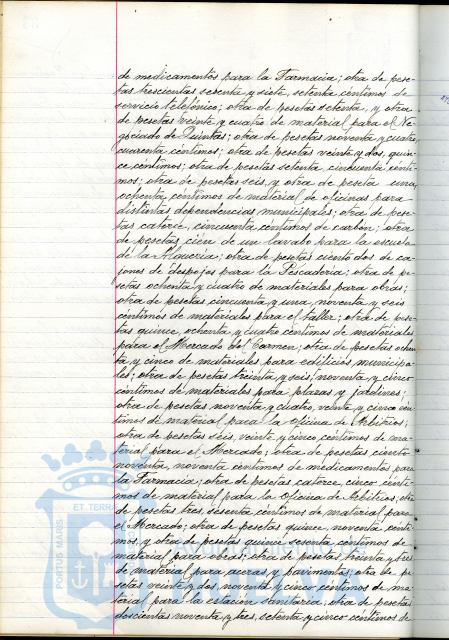 de medicamentos para la Farmacia; otra de pese-
tas trescientas setenta y siete, setenta céntimos de
servicio telefónico; otra de pesetas setenta, y otra
de pesetas veinte y cuatro de material para el Ne-
gociado de Quintas; otra de pesetas noventa y cuatro,
cuarenta céntimos; otra de pesetas veinte y dos, quin-
ce céntimos; otra de pesetas setenta, cincuenta cénti-
mos; otra de pesetas seis, y otra de peseta una,
ochenta céntimos de material de oficinas para
distintas dependencias municipales; otra de pese-
tas catorce, cincuenta céntimos de carbón; otra
de pesetas cien de un lavabo para la escuela
de la Alquería; otra de pesetas ciento dos de ca-
jones de despojos para la Pescadería; otra de pe-
setas ochenta y cuatro de materiales para obras;
otra de pesetas cincuenta y una, noventa y seis
céntimos de materiales para el taller; otra de pese-
tas quince, ochenta y cuatro céntimos de materiales
para el Mercado del Carmen; otra de pesetas ochen-
ta y cinco de materiales para edificios municipa-
les; otra de pesetas treinta y seis, noventa y cinco
céntimos de materiales para plazas y jardines;
otra de pesetas noventa y cuatro, veinte y cinco cén-
timos de material para la Oficina de Arbitrios;
otra de pesetas seis, veinte y cinco céntimos de ma-
terial para el Mercado; otra de pesetas ciento
noventa, noventa céntimos de medicamentos para
la Farmacia; otra de pesetas catorce, cinco cénti-
mos de material para la Oficina de Arbitrios; otra
de pesetas tres, sesenta céntimos de material para
el Mercado; otra de pesetas quince, noventa cénti-
mos, y otra de pesetas quince, sesenta céntimos de
material para obras; otra de pesetas treinta y tres
de material para aceras y pavimentos; otra de pe-
setas veinte y dos, noventa y cinco céntimos de ma-
terial para la estación sanitaria; otra de pesetas
doscientas noventa y tres, setenta y cinco céntimos de
ET TERRA
PORTUS MARIS